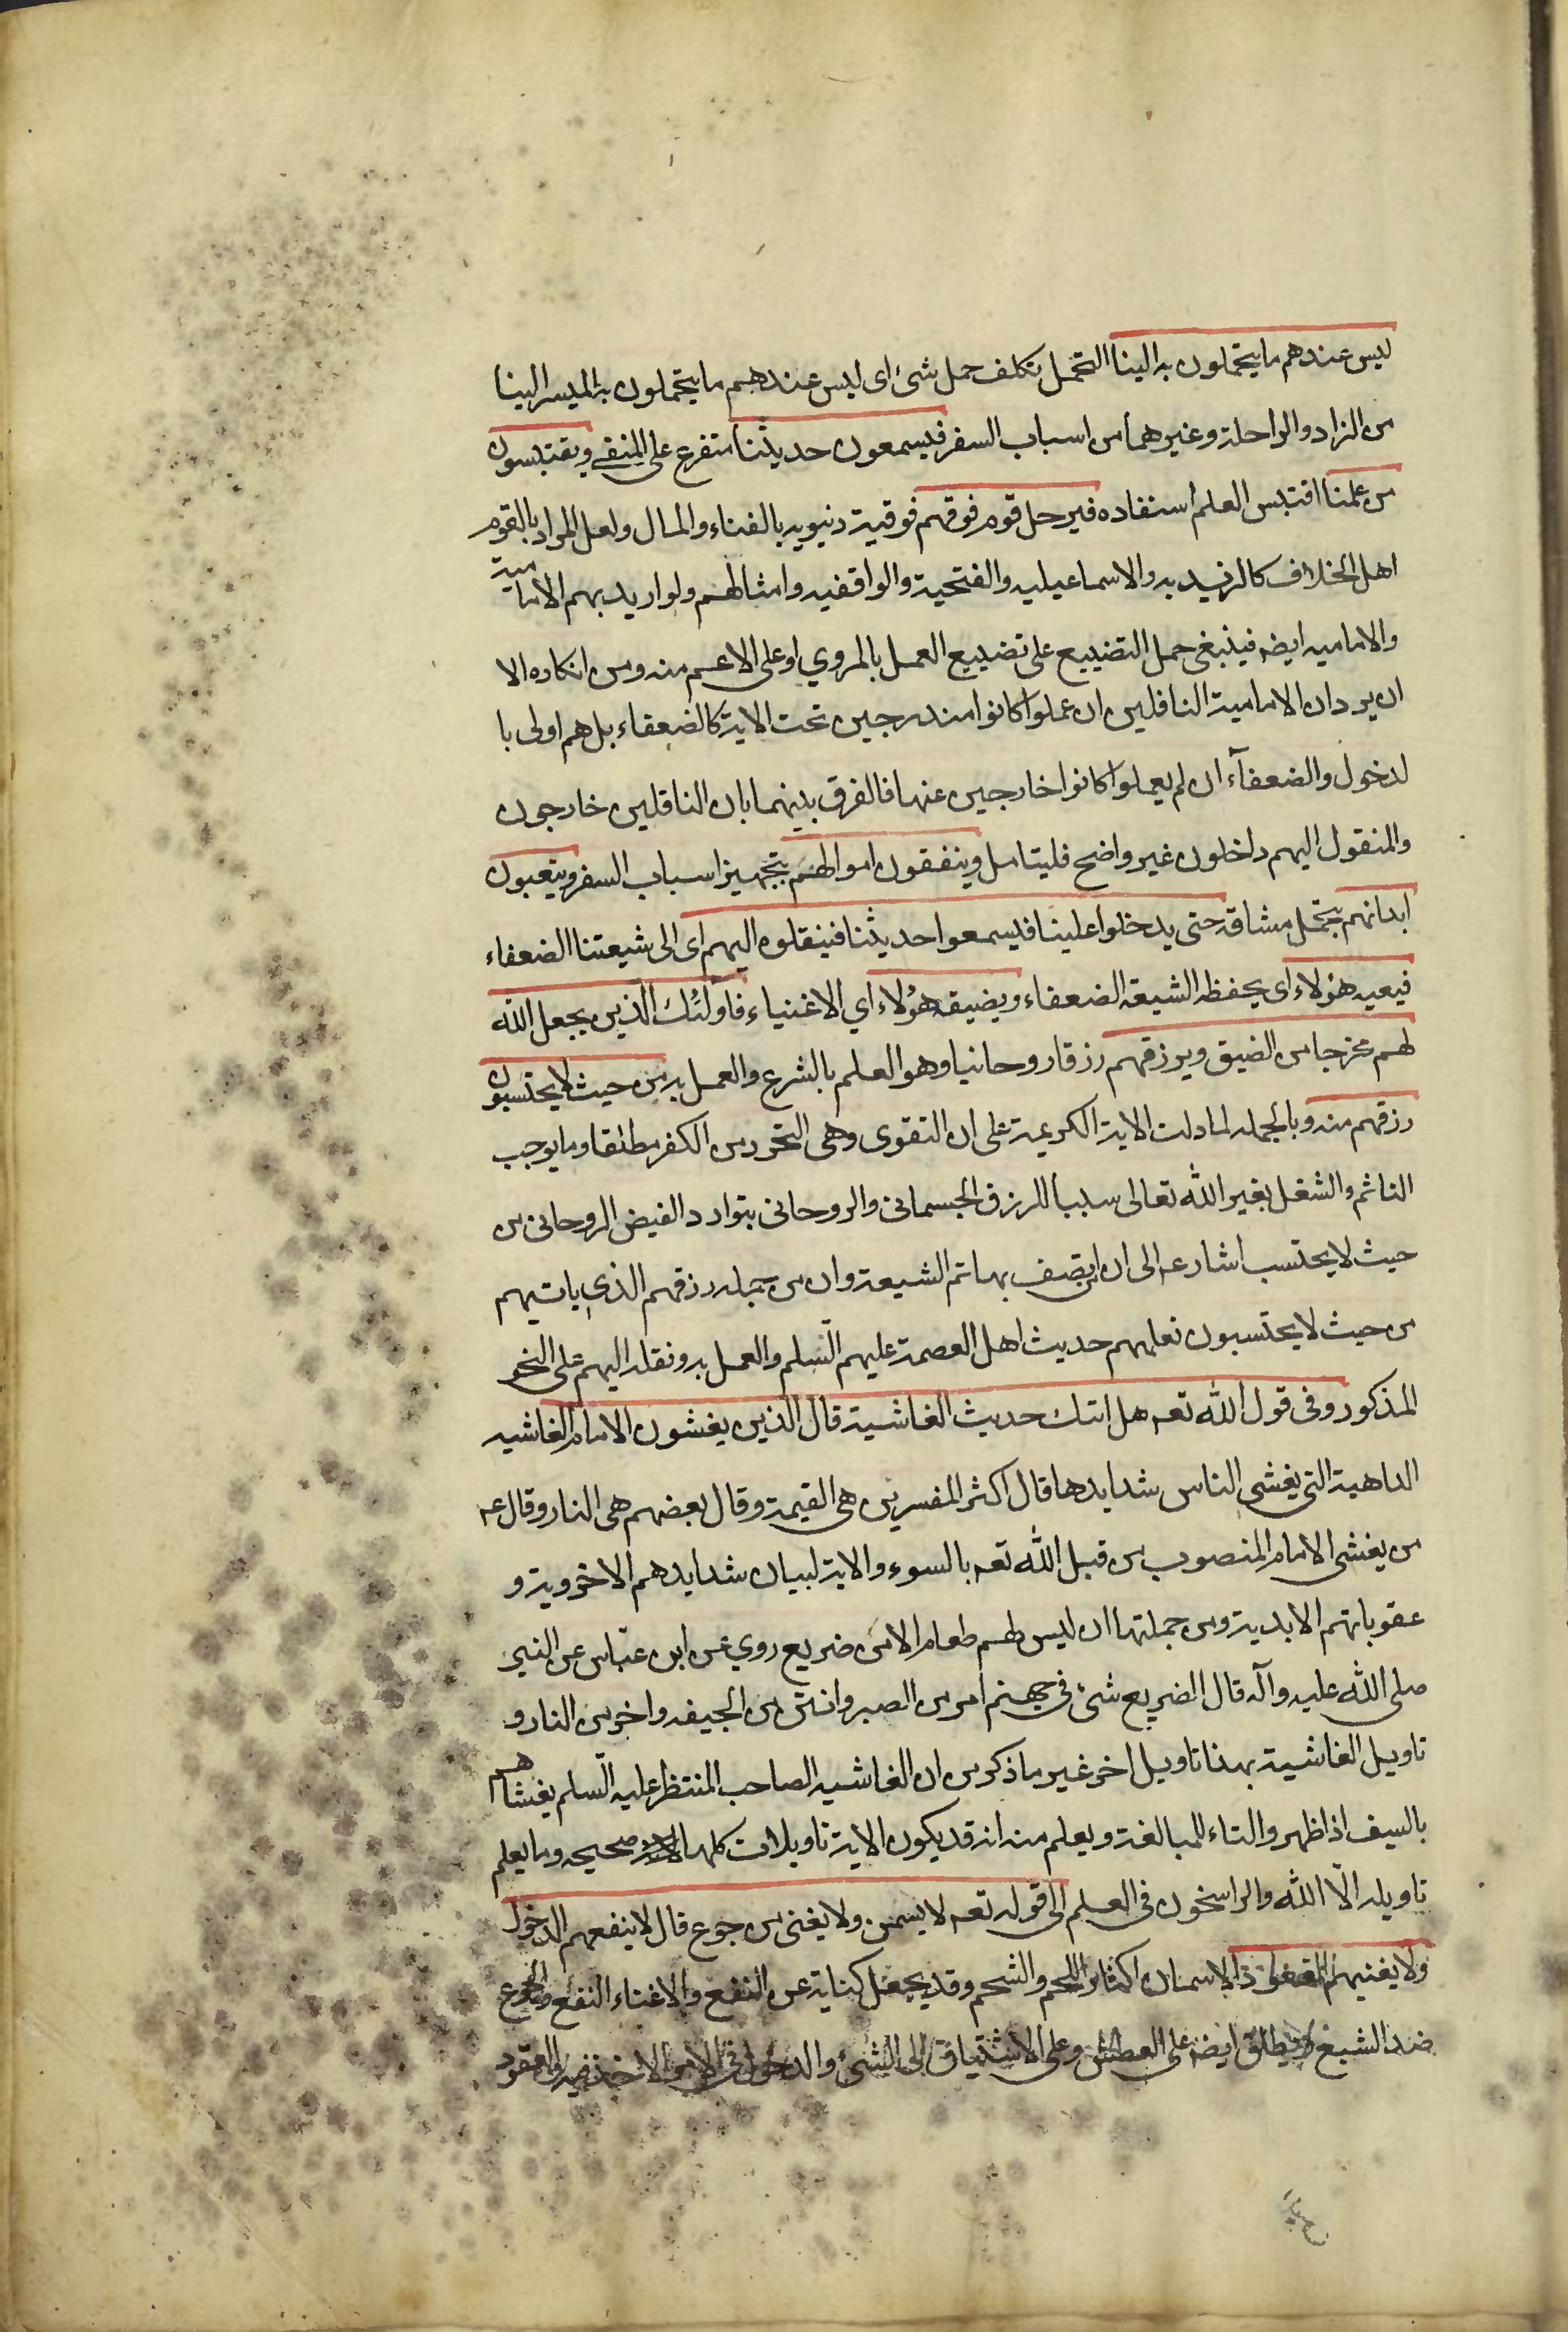 ليس عندهم ما يتحملون به الينا التحمل تكلف حمل شئ اى ليس عندهم ما يتحملون به المسير الينا
من الزاد والراحلة وغيرهما من اسباب السفر فيسمعون حديثنا متفرع على المنفي ويقتبسون
من علمنا اقتبس العلم استفاده فيرحل قوم فوقهم فوقية دنيويه بالغناء والمال ولعل المراد بالقوم
اهل الخلاف كالزيديه والاسماعيليه والفتحية والواقفيه وامثالهم ولو اريد بهم الامامية
والاماميه ايضه فينبغى حمل التضييع على تضييع العمل بالمروي او على الاعم منه ومن انكاره الا
ان يرد ان الامامية الناقلين ان عملوا كانوا مندرجين تحت الاية كالضعفاء بل هم اولى با
لدخول والضعفآء ان لم يعملوا كانوا خارجين عنها فالفرق بينهما بان الناقلين خارجون
والمنقول اليهم داخلون غير واضح فليتامل وينفقون اموالهم بتجهيز اسباب السفر ويتعبون
ابدانهم بتحمل مشاقه حتى يدخلوا علينا فيسمعوا حديثنا فينقلوه اليهم اى الى شيعتنا الضعفاء
فيعيه هؤلاء اى يحفظه الشيعة الضعفاء ويضيقه هؤلاء اي الاغنياء فاولئك الذين يجعل الله
لهم مخرجا من الضيق ويرزقهم رزقا روحانيا وهو العلم بالشرع والعمل به من حيث لا يحتسبون
رزقهم منه وبالجمله لما دلت الاية الكريمة على ان التقوى وهى التحرز من الكفر مطلقا وما يوجب
التاثم والشغل بغير الله تعالى سببا للرزق الجسمانى والروحانى بتوارد الفيض الروحانى من
حيث لا يحتسب اشار عه الى ان المتصف بها تم الشيعة وان من جمله رزقهم الذي ياتيهم
من حيث لا يحتسبون تعلمهم حديث اهل العصمة عليهم السلم والعمل به ونقله اليهم على النحو
المذكور وفى قول الله تعه هل اتيك حديث الغاشية قال الذين يغشون الامام الغاشيه
الداهية التى يغشى الناس شدايدها قال اكثر المفسرين هى القيمة وقال بعضهم هى النار وقال عه
من يغشى الامام المنصوب من قبل الله تعه بالسوء والاية لبيان شدايدهم الاخروية و
عقوباتهم الابدية ومن جملتها ان ليس لهم طعام الا من ضريع روي عن ابن عباس عن النبي
صلى الله عليه وآله قال الضريع شئ فى جهنم امر من الصبر وانتن من الجيفه واحر من النار و
تاويل الغاشية بهذا تاويل اخر غير ما ذكر من ان الغاشيه الصاحب المنتظر عليه السلم يغشاهم
بالسيف اذا ظهر والتاء للمبالغة ويعلم منه انه قد يكون الاية تاويلات كلها صحيحه وما يعلم
تاويله الا الله والراسخون فى العلم الى قوله تعه لا يسمن ولا يغنى من جوع قال لا ينفعهم الدخول
ولا يغنيهم القعود الاسمان اكثار اللحم والشحم وقد يجعل كناية عن النفع والاغناء النفع والجوع
ضد الشبع ويطلق ايضه على العطش وعلى الاشتياق الى الشئ والدخول فى الامر الاخذ فيه والقعود